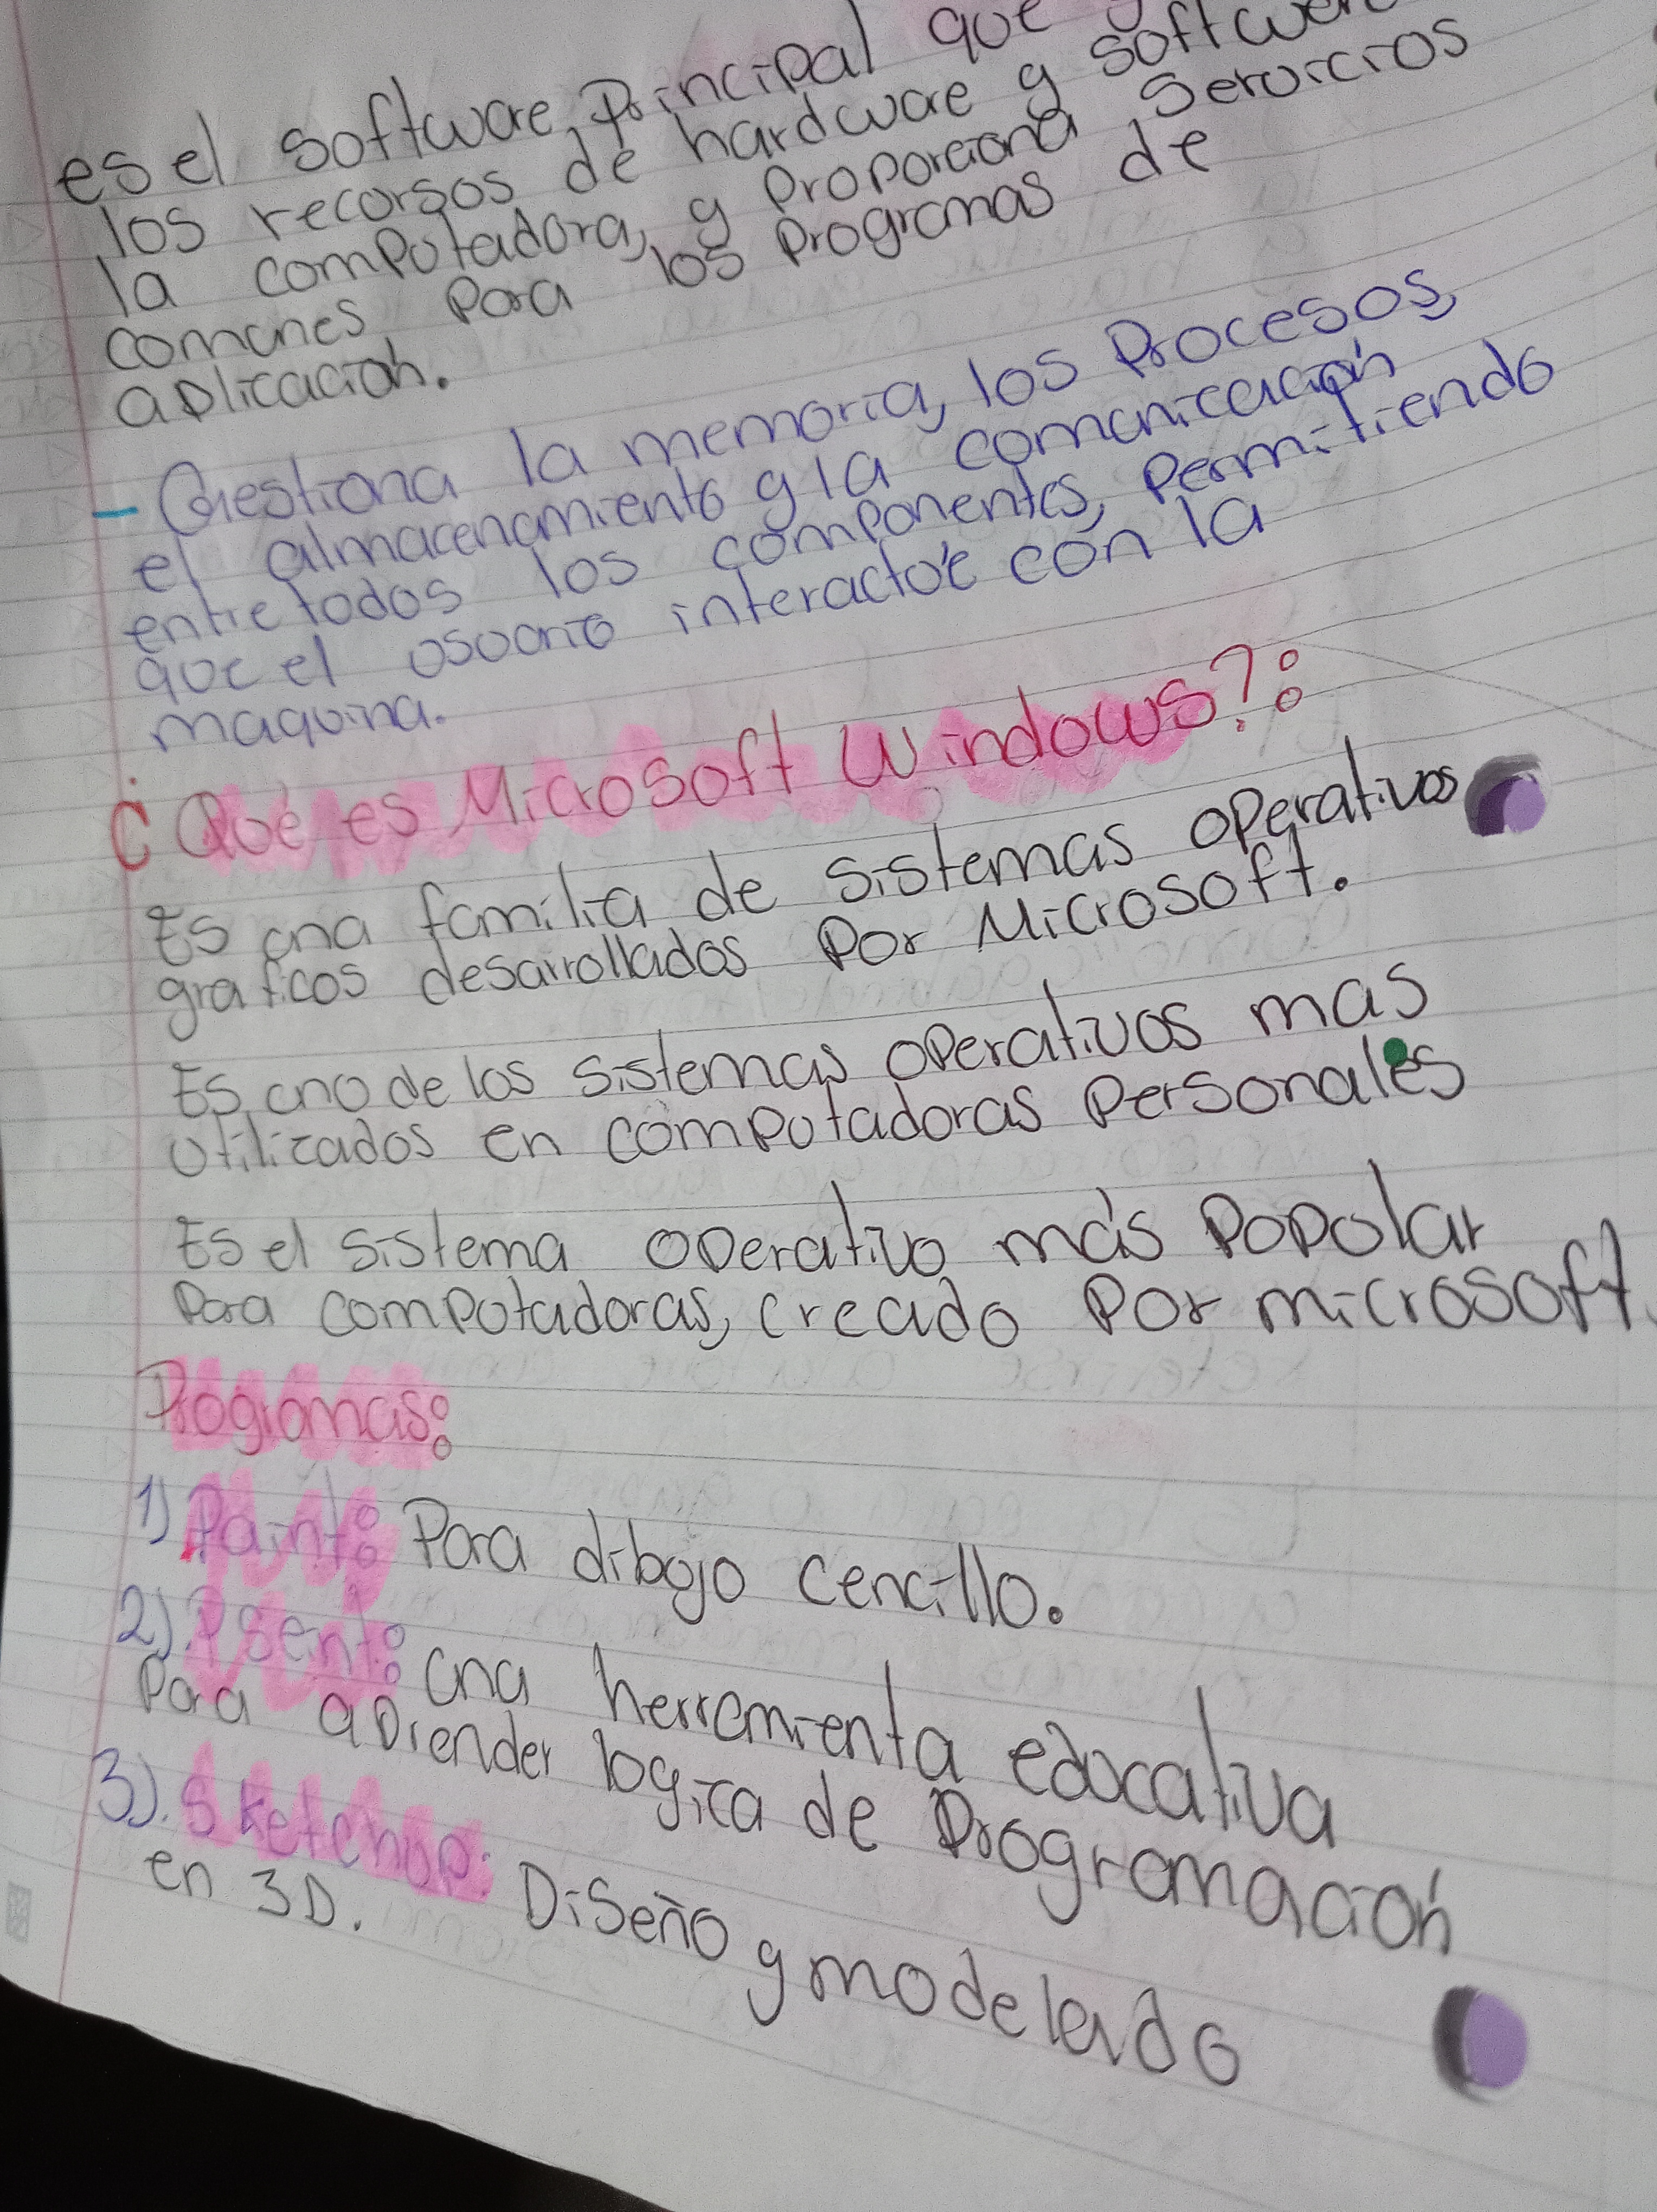 es el software Principal que
los recursos de hardware y software
la computadora, y Proporciona Servicios
comunes para los Programas de
aplicación.
- Gestiona la memoria, los Procesos,
el almacenamiento y la comunicación
entre todos los componentes, Permitiendo
que el usuario interactúe con la
maquina.
¿Qué es Microsoft Windows?:
Es una familia de sistemas operativos
graficos desarrollados Por Microsoft.
Es uno de los sistemas operativos mas
utilizados en computadoras Personales
Es el sistema operativo más Popular
Para computadoras, creado Por microsoft.
Programas:
1) Paint: Para dibujo cencillo.
2). Pseint: una herramienta educativa
Para aprender logica de Programación
3). Sketchup: Diseño y modelado
en 3D.